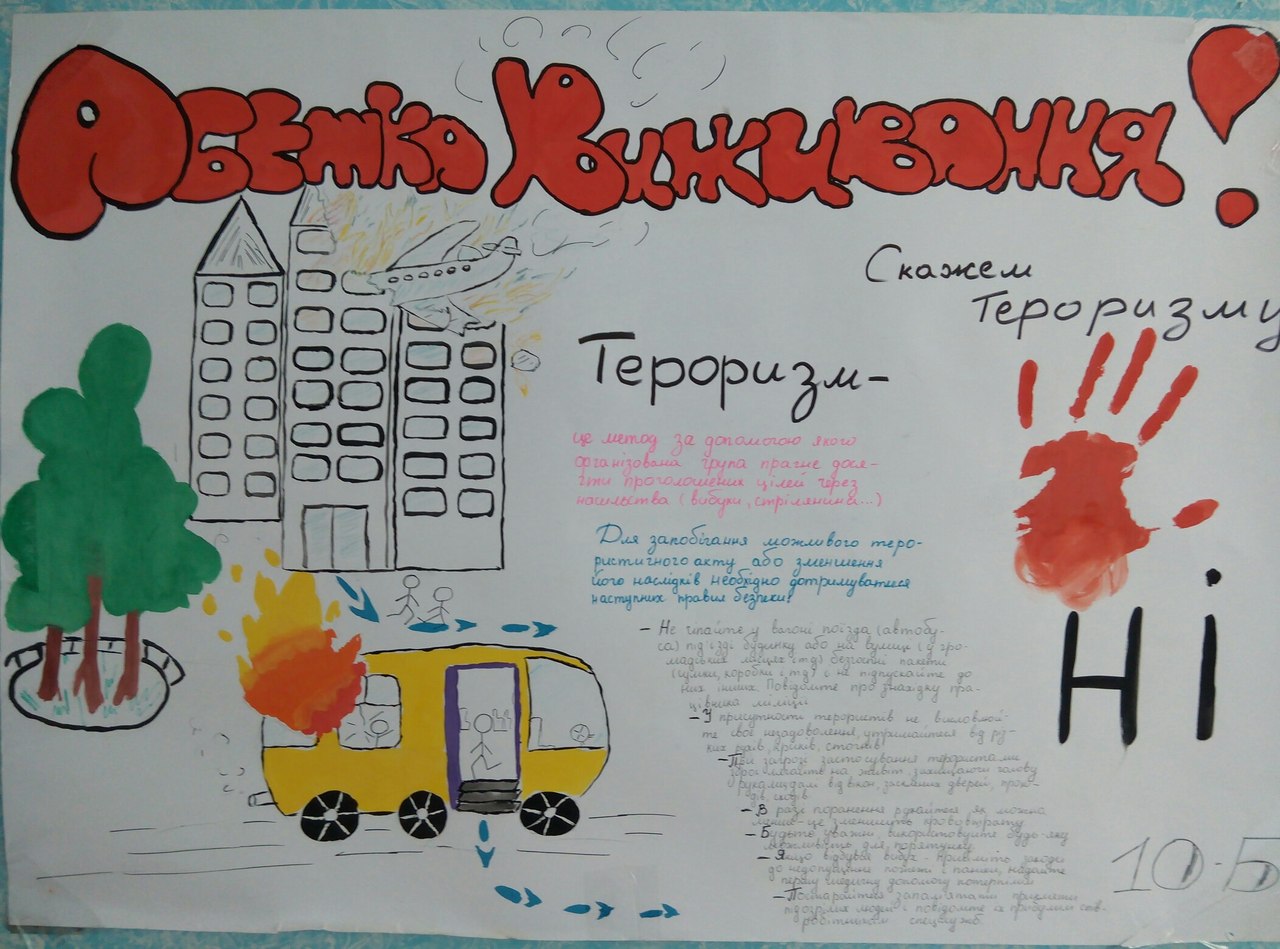 Абетка Виживання!
Скажем
Тероризму
Ні
Тероризм-
це метод за допомогою якого
організована група прагне дося-
гти проголошених цілей через
насильства (вибухи, стрілянини...)
Для запобігання можливого теро-
ристичного акту або зменшення
його наслідків необхідно дотримуватися
наступних правил безпеки!
- Не чіпайте у вагоні поїзда (автобу-
са) під'їзді будинку або на вулиці (у гро-
мадських місцях ітд) безхозні пакети
(сумки, коробки ітд) і не підпускайте до
них інших. Повідомте про знахідку пра-
цівника міліції
- У присутності терористів не висловлюй-
те своє незадоволення, утримайтеся від рі-
зких рухів, криків, стогнів
- При загрозі застосування терористами
зброї лягайте на живіт, захищаючи голову
руками, далі від вікон, засклених дверей, прохо-
дів, сходів
- В разі поранення рухайтеся як можна
менше - це зменшить крововтрату
- Будьте уважні, використовуйте будь-яку
можливість для порятунку
- Якщо відбувся вибух - прийміть заходи
до недопущення пожежі і паніки, надайте
першу медичну допомогу потерпілим
- Постарайтеся запам'ятати прикмети
підозрілих людей і повідомте їх прибулим спів-
робітникам спецслужб
10-Б